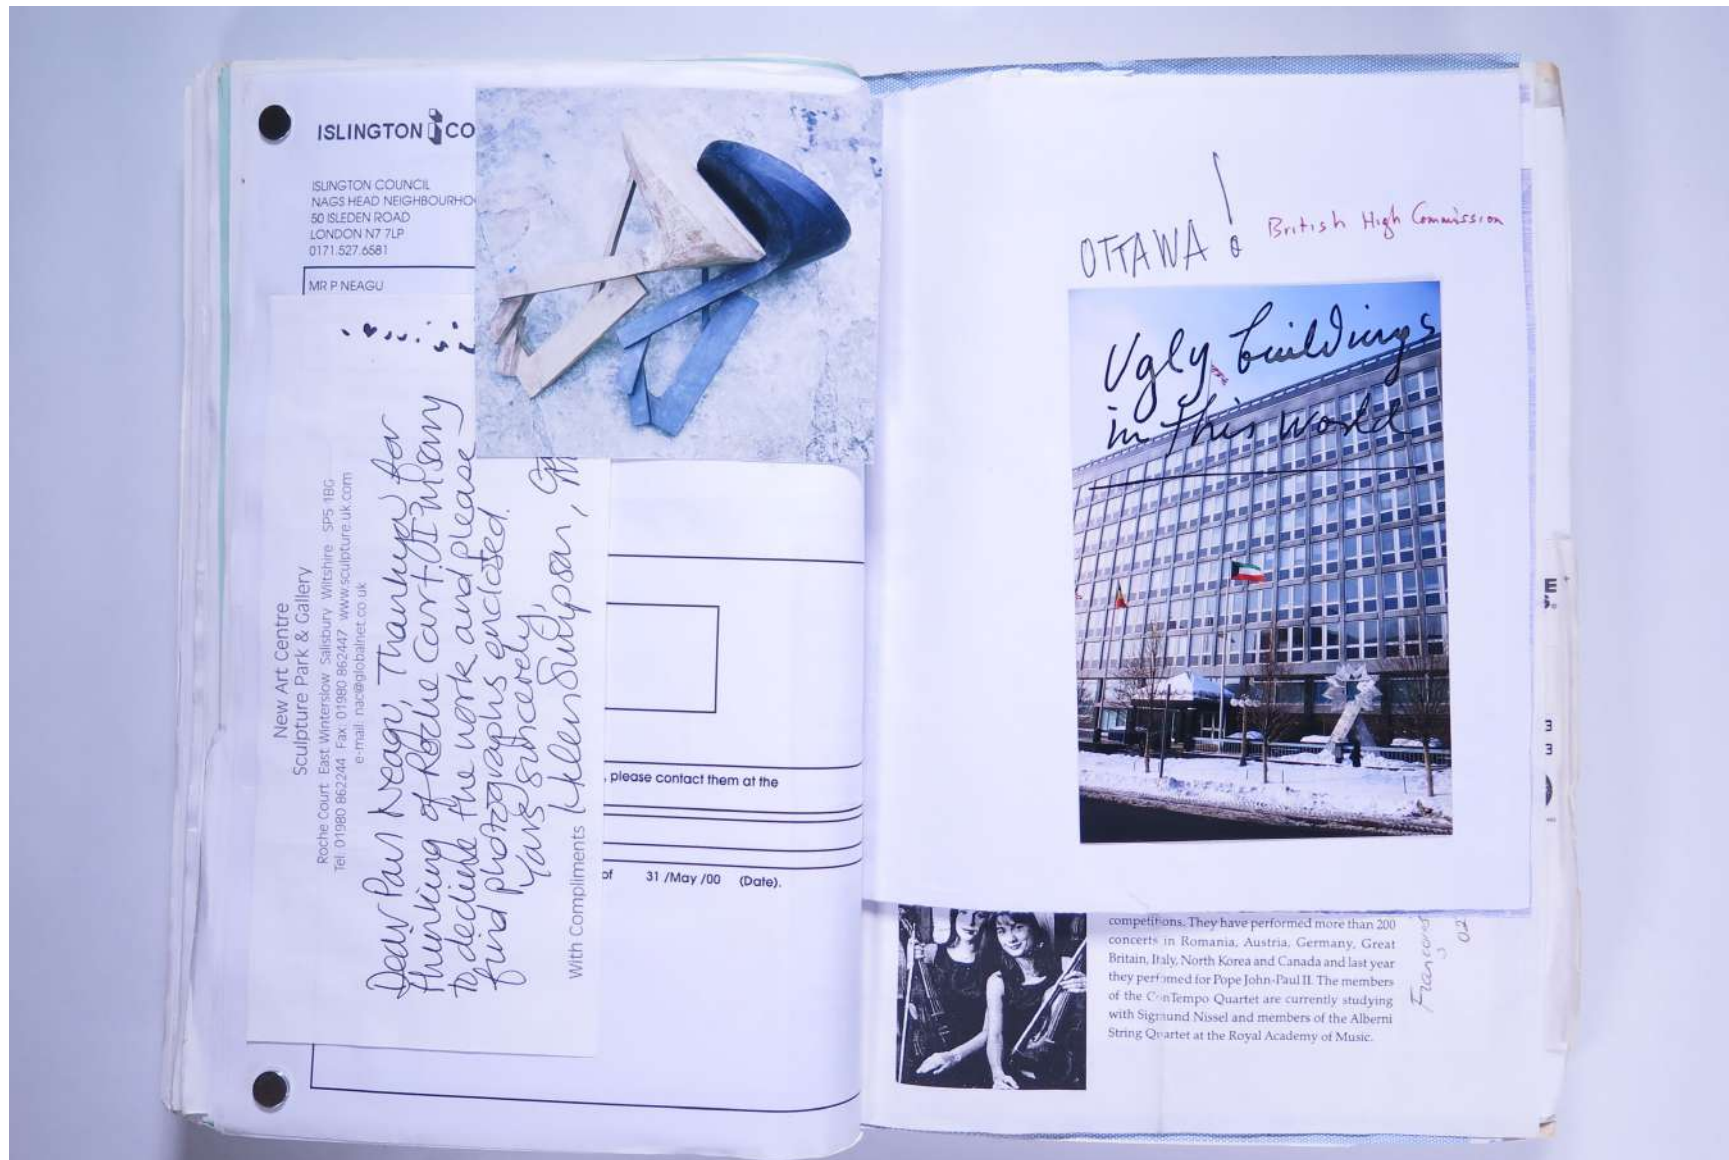 ISLINGTON CO
ISLINGTON COUNCIL
NAGS HEAD NEIGHBOURHO
50 ISLEDEN ROAD
LONDON N7 7LP
0171.527.6581
MR P NEAGU
New Art Centre
Sculpture Park & Gallery
Roche Court East Winterslow Salisbury Wiltshire SP5 1BG
Tel: 01980 862244 Fax: 01980 862447 www.sculpture.uk.com
e-mail: nac@globalnet.co.uk
Dear Paul Neagu, Thankyou for
thinking of Roche Court. I'm sorry
to decline the work and please
find photographs enclosed.
Yours sincerely,
With Compliments Helen Simpson,
, please contact them at the
of 31 /May /00 (Date).
OTTAWA !
British High Commission
Ugly buildings
in this world
competitions. They have performed more than 200
concerts in Romania, Austria, Germany, Great
Britain, Italy, North Korea and Canada and last year
they perfomed for Pope John-Paul II. The members
of the ConTempo Quartet are currently studying
with Sigmund Nissel and members of the Alberni
String Quartet at the Royal Academy of Music.
02
E
3
3